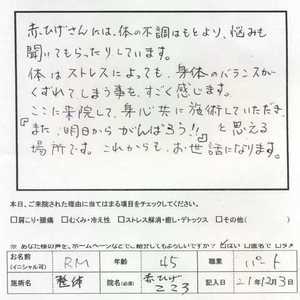 赤ひげさんには、体の不調はもとより、悩みも
聞いてもらったりしています。
体はストレスによっても、身体のバランスが
くずれてしまう事を、すごく感じます。
ここに来院して、身心共に施術していただき、
『また、明日から がんばろう!!』と思える
場所です。これからも、お世話になります。
本日、ご来院された理由に当てはまる項目をチェックしてください。
□肩こり・腰痛 □むくみ・冷え性 □ストレス解消・癒し・デトックス □その他( )
※あなた様の声を、ホームページなどでご紹介してもよろしいですか?
名前 (イニシャル可) RM 年齢 45 職業 パート
施術名 整体 院名(必須) 赤ひげ こころ 記入日 21年12月3日